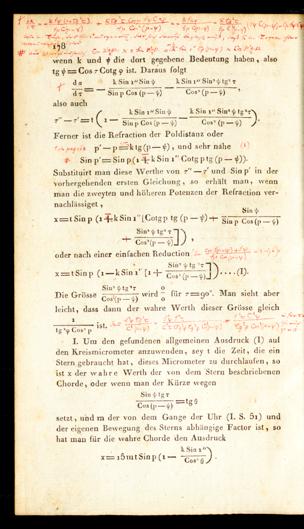 178
wenn k und ψ die dort gegebene Bedeutung haben, also
tg ψ = Cos τ Cotg φ ist. Daraus folgt
dα/dτ = − k Sin 1'' Sin ψ / Sin p Cos (p−ψ) − k Sin 1'' Sin² ψ tg² τ / Cos² (p−ψ),
also auch
τ''−τ' = t (1 − k Sin 1'' Sin ψ / Sin p Cos (p−ψ) − k Sin 1'' Sin² ψ tg² τ / Cos² (p−ψ)).
Ferner ist die Refraction der Poldistanz oder
p'−p = k tg (p−ψ), und sehr nähe
Sin p' = Sin p (1 + k Sin 1'' Cotg p tg (p−ψ)).
Substituirt man diese Werthe von τ''−τ' und Sin p' in der
vorhergehenden ersten Gleichung, so erhält man, wenn
man die zweyten und höheren Potenzen der Refraction ver-
nachlässiget,
x = t Sin p (1 + k Sin 1'' [Cotg p tg (p−ψ) + Sin ψ / Sin p Cos (p−ψ)
+ Sin² ψ tg² τ / Cos² (p−ψ)]),
oder nach einer einfachen Reduction
x = t Sin p (1 − k Sin 1'' [1 + Sin² ψ tg² τ / Cos² (p−ψ)]) .... (I).
Die Grösse Sin² ψ tg² τ / Cos² (p−ψ) wird 0/0 für τ = 90°. Man sieht aber
leicht, dass dann der wahre Werth dieser Grösse gleich
1 / tg² φ Cos² p ist.
I. Um den gefundenen allgemeinen Ausdruck (I) auf
den Kreismicrometer anzuwenden, sey t die Zeit, die ein
Stern gebraucht hat, dieses Micrometer zu durchlaufen, so
ist x der wahre Werth der von dem Stern beschriebenen
Chorde, oder wenn man der Kürze wegen
Sin ψ tg τ / Cos (p−ψ) = tg ϑ
setzt, und m der von dem Gange der Uhr (I. S. 81) und
der eigenen Bewegung des Sterns abhängige Factor ist, so
hat man für die wahre Chorde den Ausdruck
x = 15 m t Sin p (1 − k Sin 1'' / Cos² ϑ).